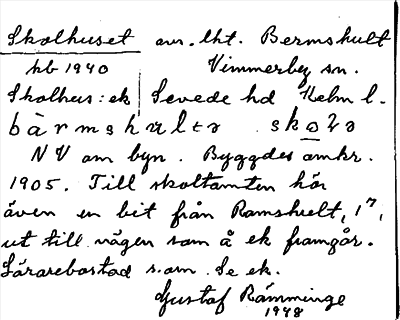 Skolhuset av. lht. Bermshult
hb 1940 Vimmerby sn.
Skolhus: ek Sevede hd Kalm l.
bärmshulta skola
NV om byn. Byggdes omkr.
1905. Till skoltomten hör
även en bit från Ramshult, 1⁷,
ut till vägen som å ek framgår.
Lärarebostad s. om. Se ek.
Gustaf Rämminge
1948